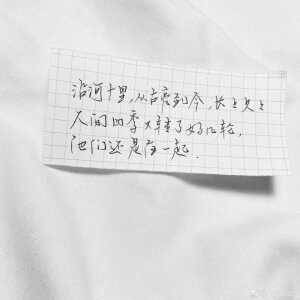 沿河十里,从古亮到今,长长久久
人间四季又转了好几轮,
他们还是在一起.